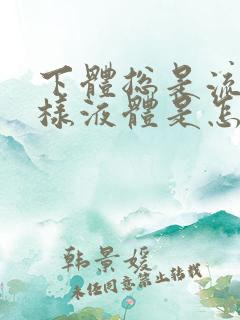 下體總是流
樣液體是怎
韩景媛
未经同意禁止转载